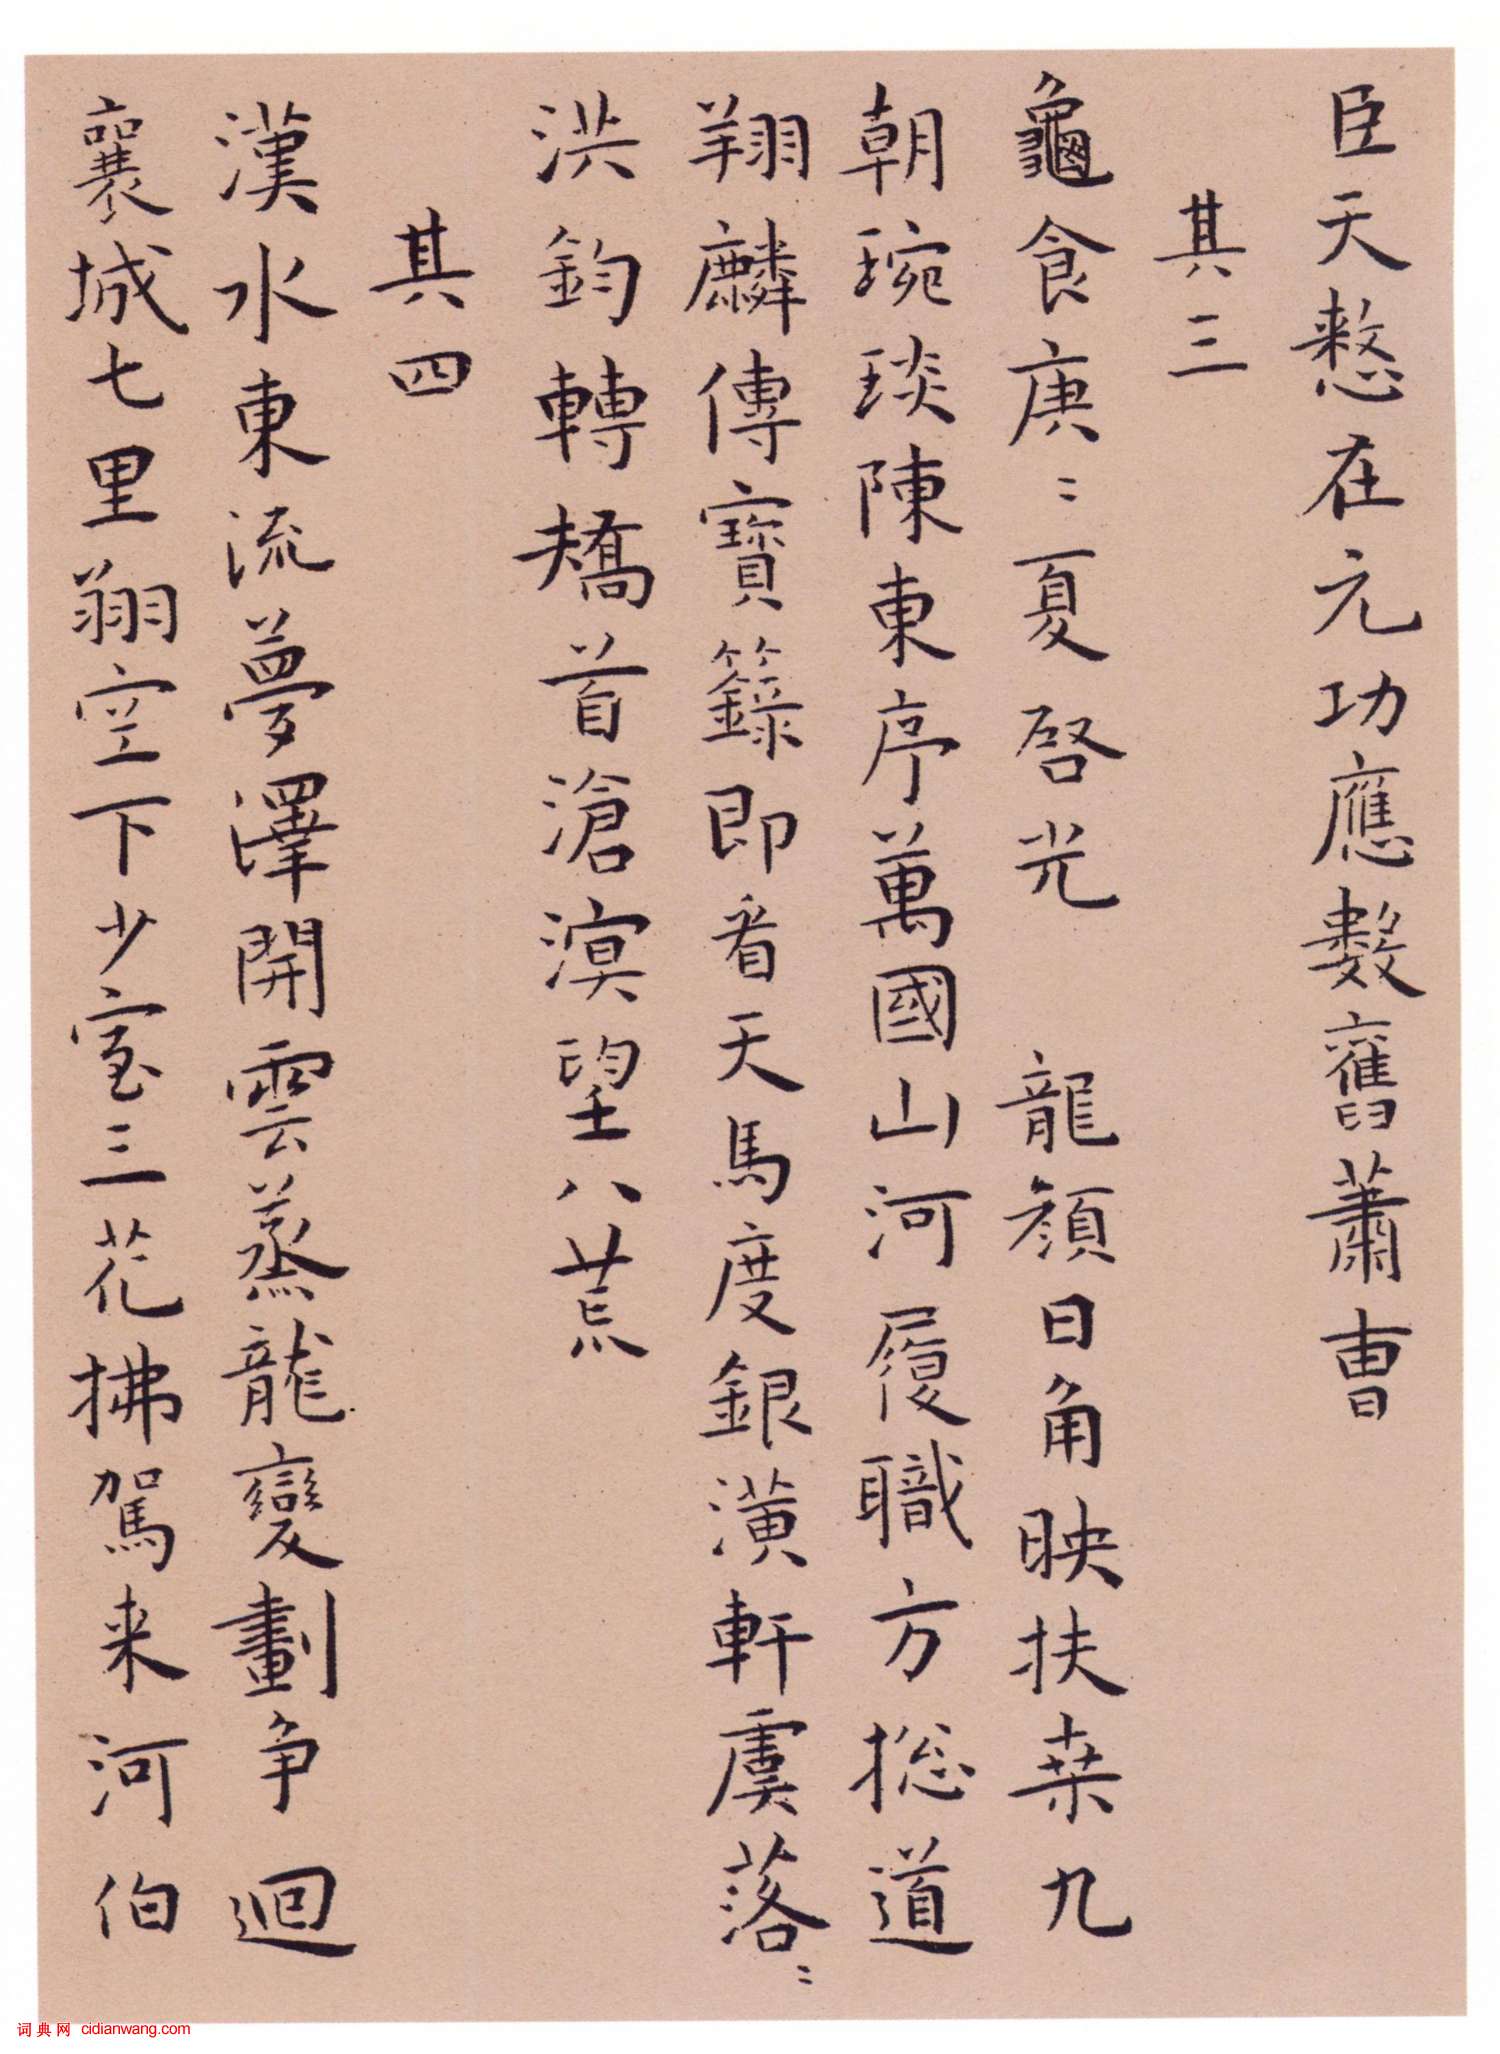 臣天憗在元功應數舊蕭曹
其三
龜食庚〻夏啓光 龍顏日角映扶桒九
朝琬琰陳東序萬國山河履職方揔道
翔麟傳寶籙即看天馬度銀潢軒虞落〻
洪鈞轉矯首滄溟望八荒
其四
漢水東流夢澤開雲蒸龍變劃争迴
襄城七里翔空下少室三花拂駕来河伯
词典网 cidianwang.com